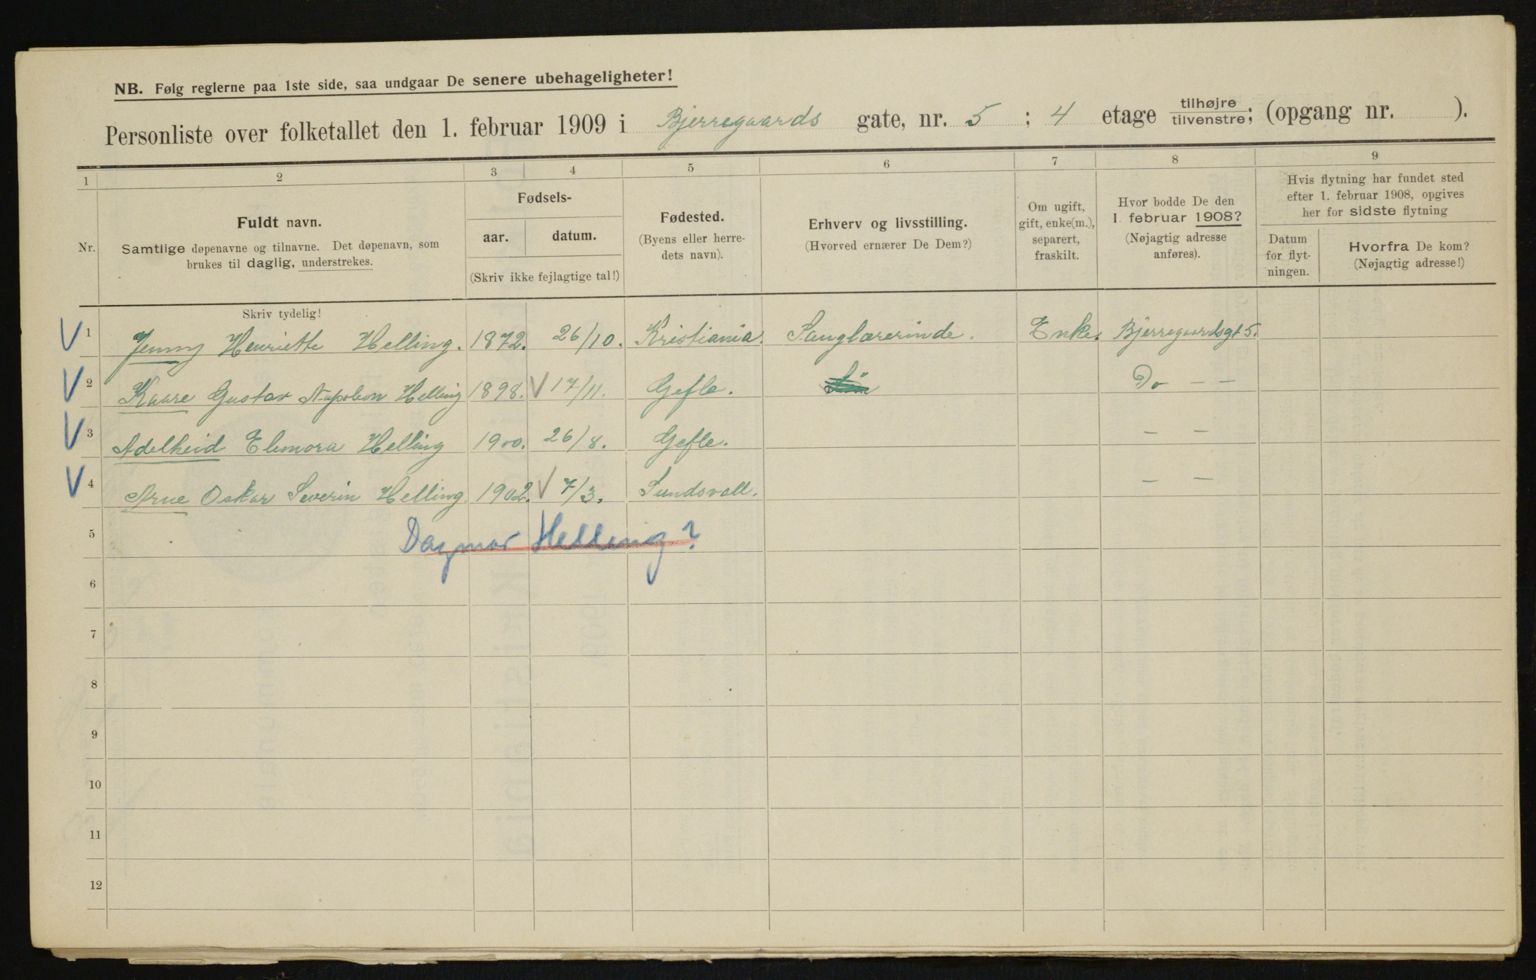 NB. Følg reglerne paa 1ste side, saa undgaar De senere ubehageligheter!
Personliste over folketallet den 1. februar 1909 i Bjerregaards gate, nr. 5 ; 4 etage tilhøjre tilvenstre; (opgang nr. ).
1 2 3 4 5 6 7 8 9
Nr.
Fuldt navn.
Samtlige døpenavne og tilnavne. Det døpenavn, som
brukes til daglig, understrekes.
Fødsels-
aar. datum.
(Skriv ikke fejlagtige tal!)
Fødested.
(Byens eller herre-
dets navn).
Erhverv og livsstilling.
(Hvorved ernærer De Dem?)
Om ugift,
gift, enke(m.),
separert,
fraskilt.
Hvor bodde De den
1. februar 1908?
(Nøjagtig adresse
anføres).
Hvis flytning har fundet sted
efter 1. februar 1908, opgives
her for sidste flytning
Datum
for flyt-
ningen.
Hvorfra De kom?
(Nøjagtig adresse!)
Skriv tydelig!
V 1 Jenny Henriette Helling. 1872. 26/10. Kristiania. Sanglærerinde. Enke. Bjerregaardsgt 5.
V 2 Kaare Gustav Napoleon Helling 1898. V 17/11. Gefle. Do — —
V 3 Adelheid Elenora Helling 1900. 26/8. Gefle. — —
V 4 Arne Oskar Severin Helling 1902. V 7/3. Sundsvall. — —
5 Dagmar Helling?
6
7
8
9
10
11
12